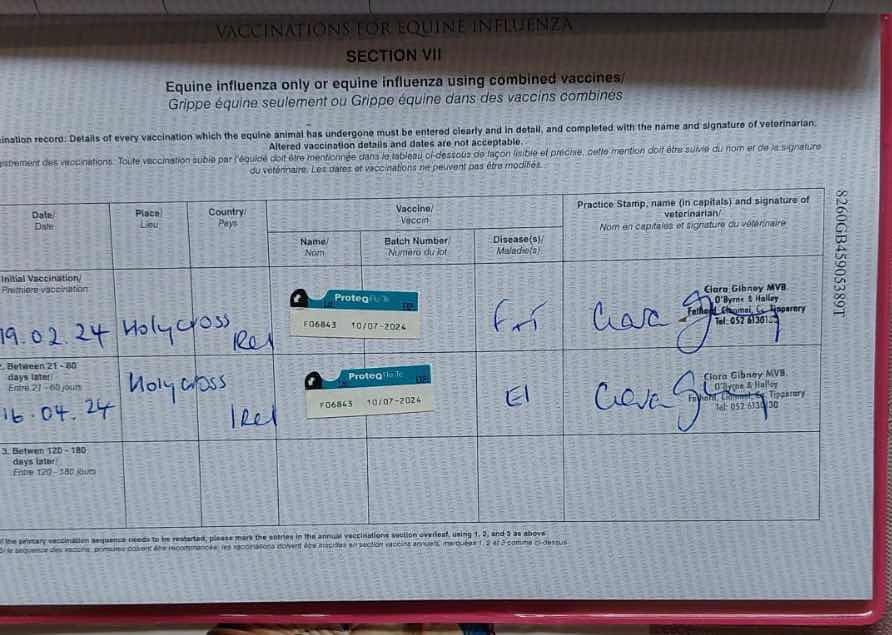 VACCINATIONS FOR EQUINE INFLUENZA
SECTION VII
Equine influenza only or equine influenza using combined vaccines/
Grippe équine seulement ou Grippe équine dans des vaccins combinés
ination record: Details of every vaccination which the equine animal has undergone must be entered clearly and in detail, and completed with the name and signature of veterinarian.
Altered vaccination details and dates are not acceptable.
gistrement des vaccinations: Toute vaccination subie par l'équidé doit être mentionnée dans le tableau ci-dessous de façon lisible et précise, cette mention doit être suivie du nom et de la signature
du vétérinaire. Les dates et vaccinations ne peuvent pas être modifiés.
Date/
Date
Place/
Lieu
Country/
Pays
Vaccine/
Vaccin
Practice Stamp, name (in capitals) and signature of
veterinarian/
Nom en capitales et signature du vétérinaire
Name/
Nom
Batch Number/
Numero du lot
Disease(s)/
Maladie(s)
8260GB45905389T
Initial Vaccination/
Première vaccination
19.02.24
Holycross
Irel
ProteqFlu-Te
F06843 10/07-2024
Ciara
Ciara Gibney MVB
O'Byrne & Halley
Fethard, Clonmel, Co. Tipperary
Tel: 052 61301
2. Between 21 - 60
days later/
Entre 21 - 60 jours
16.04.24
Holycross
Irel
ProteqFlu-Te
F06843 10/07-2024
EI
Ciara
Ciara Gibney MVB.
O'Byrne & Halley
Fethard, Clonmel, Co. Tipperary
Tel: 052 6130130
3. Betwen 120 - 180
days later/
Entre 120 - 180 jours
If the primary vaccination sequence needs to be restarted, please mark the entries in the annual vaccinations section overleaf, using 1, 2, and 3 as above